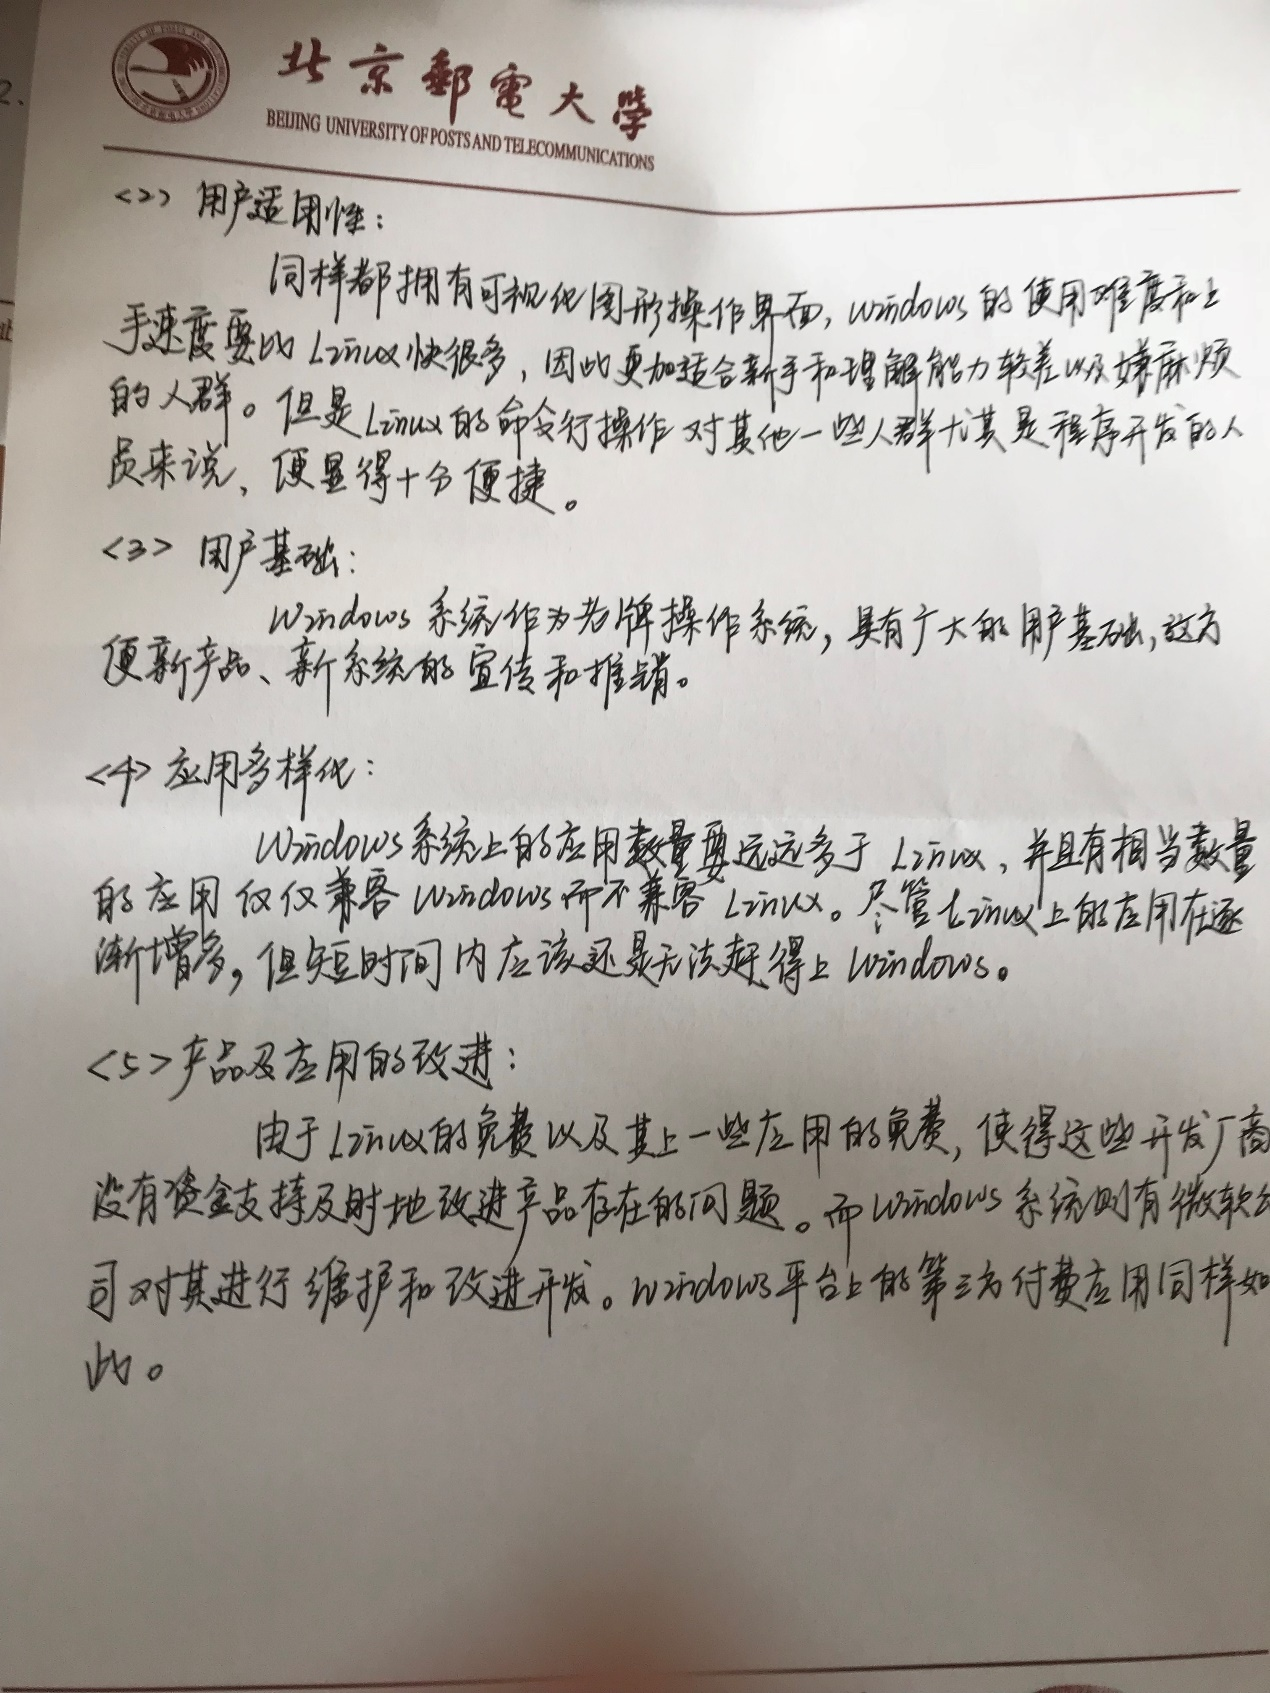 北京郵電大學
BEIJING UNIVERSITY OF POSTS AND TELECOMMUNICATIONS
<2> 用户适用性：
同样都拥有可视化图形操作界面，Windows的使用难度和上
手速度要比Linux快很多，因此更加适合新手和理解能力较差以及嫌麻烦
的人群。但是Linux的命令行操作对其他一些人群尤其是程序开发的人
员来说，便显得十分便捷。
<3> 用户基础：
Windows系统作为老牌操作系统，具有广大的用户基础，这方
便新产品、新系统的宣传和推销。
<4> 应用多样化：
Windows系统上的应用数量要远远多于Linux，并且有相当数量
的应用仅仅兼容Windows而不兼容Linux。尽管Linux上的应用在逐
渐增多，但短时间内应该还是无法赶得上Windows。
<5> 产品及应用的改进：
由于Linux的免费以及其上一些应用的免费，使得这些开发厂商
没有资金支持及时地改进产品存在的问题。而Windows系统则有微软公
司对其进行维护和改进开发。Windows平台上的第三方付费应用同样如
此。